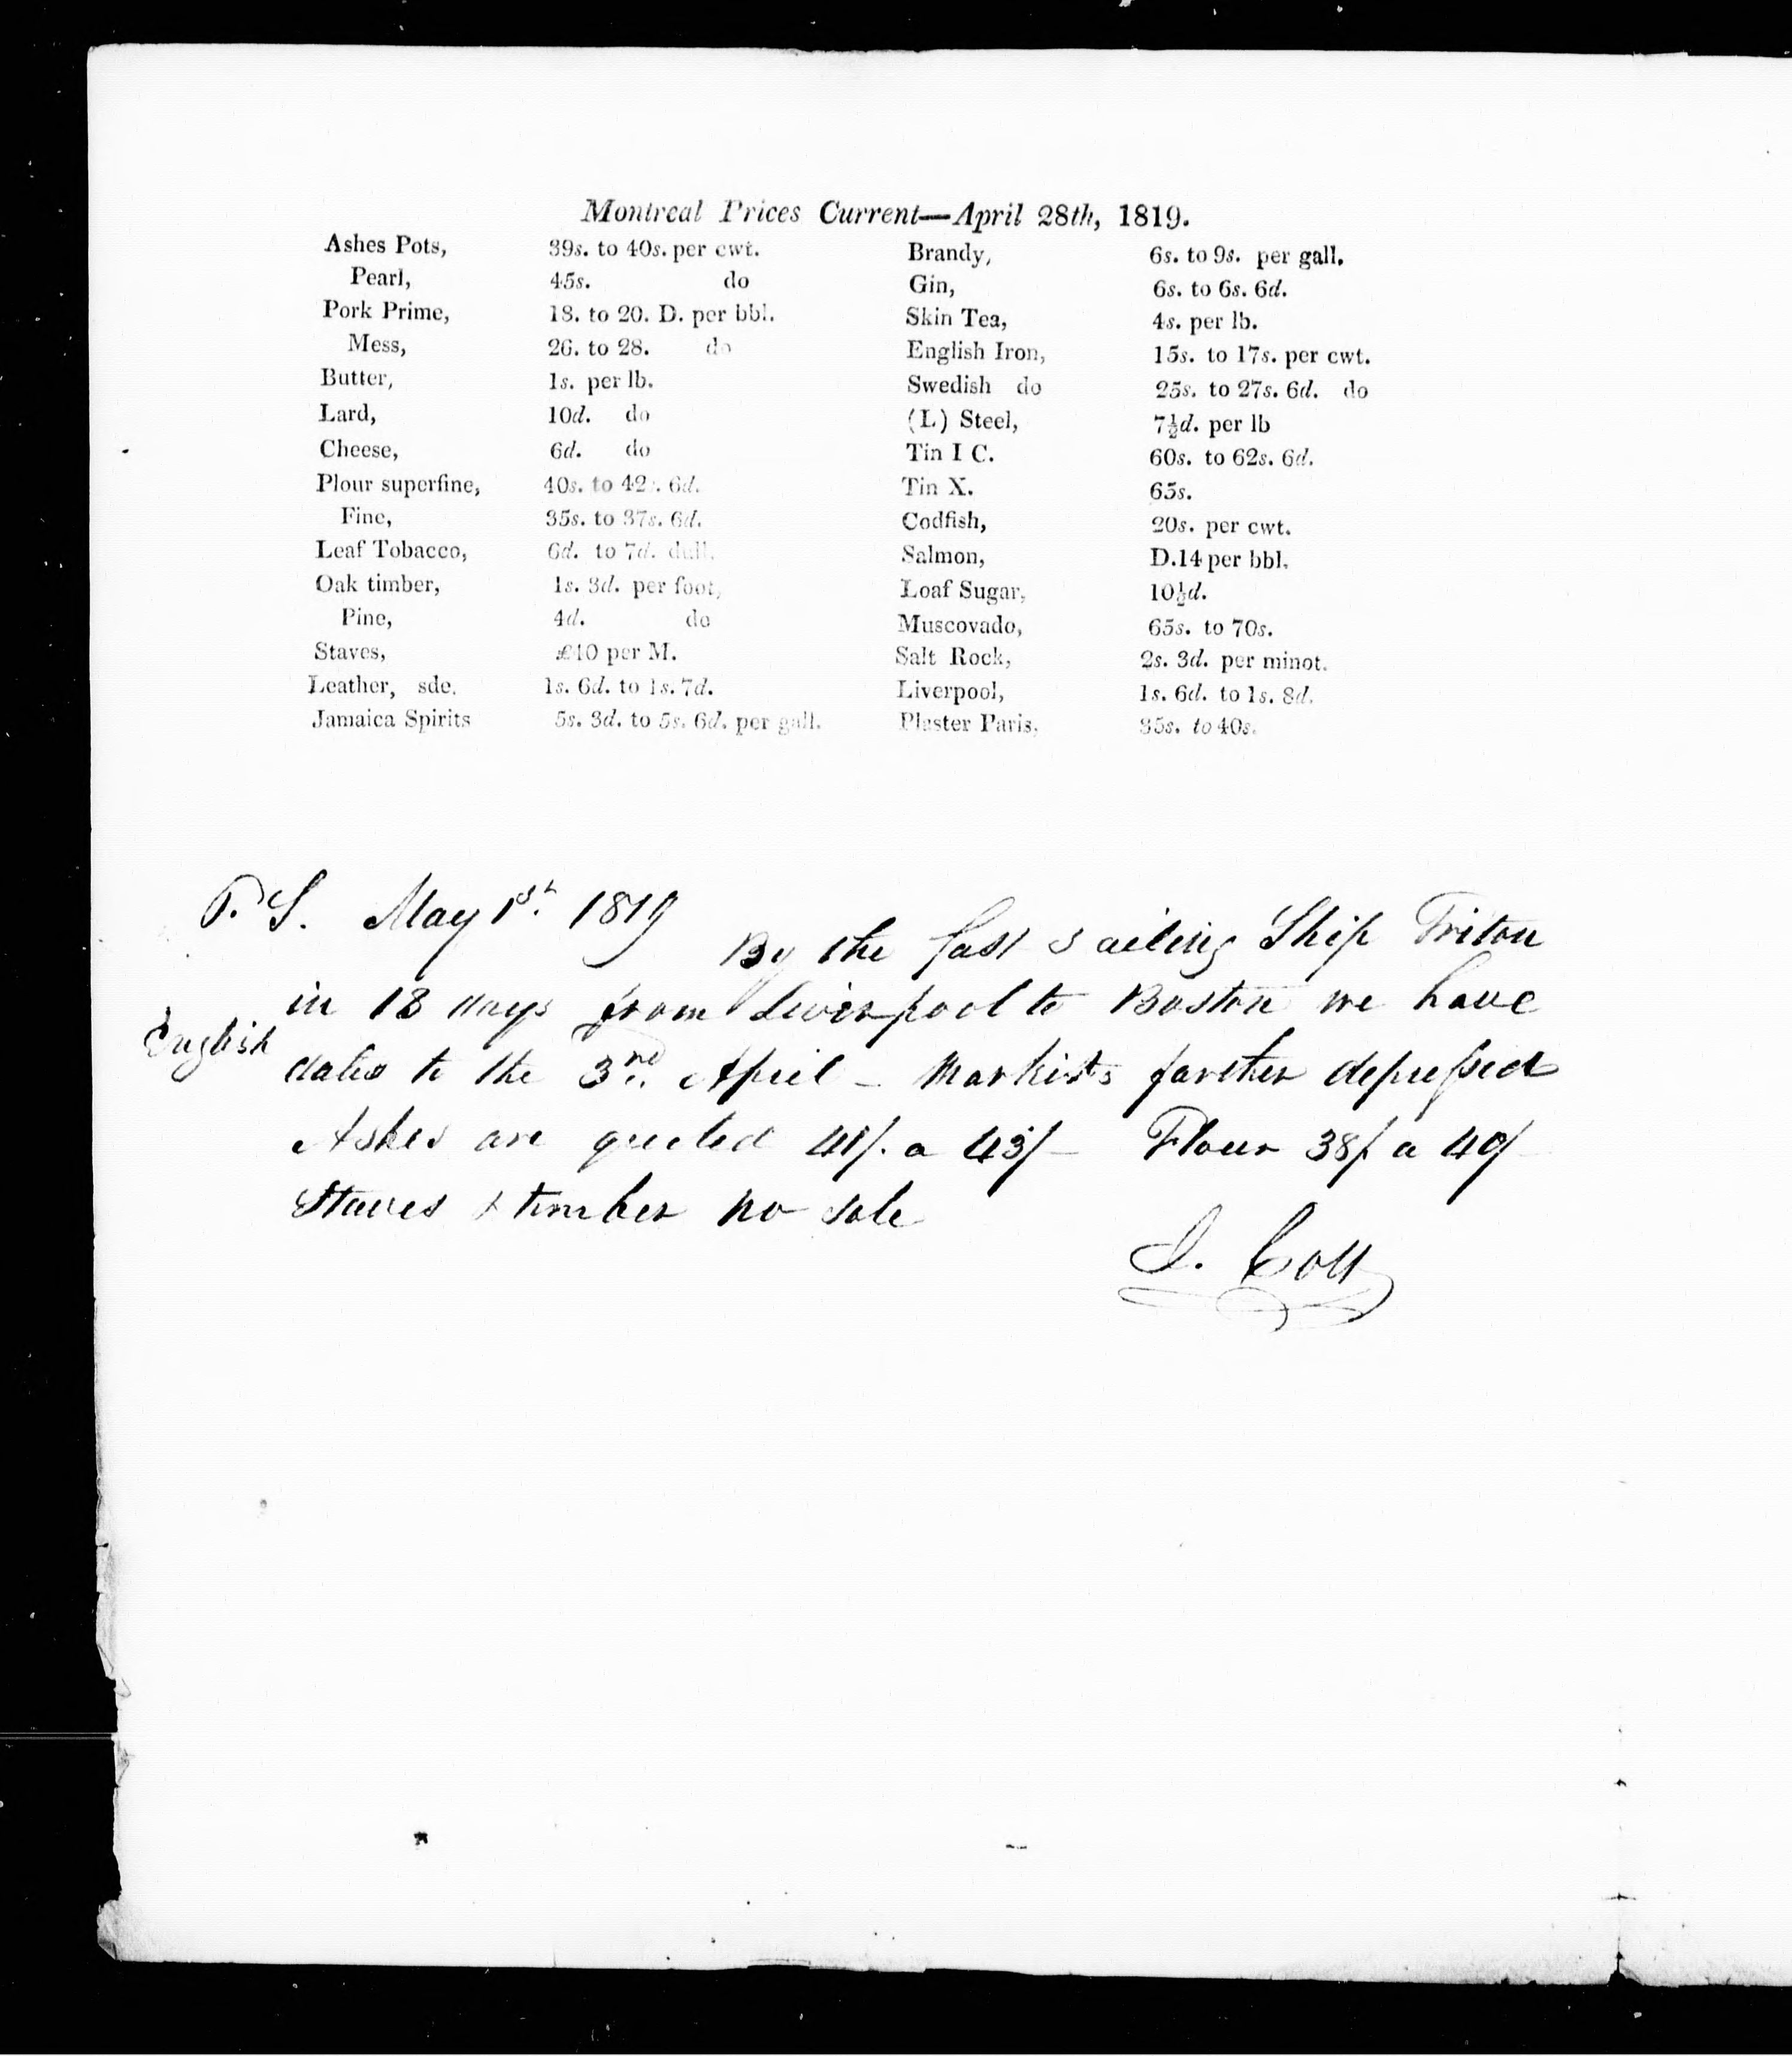 Montreal Prices Current—April 28th, 1819.
Ashes Pots, 39s. to 40s. per cwt.
Pearl, 45s. do
Pork Prime, 18. to 20. D. per bbl.
Mess, 26. to 28. do
Butter, 1s. per lb.
Lard, 10d. do
Cheese, 6d. do
Plour superfine, 40s. to 42s. 6d.
Fine, 35s. to 37s. 6d.
Leaf Tobacco, 6d. to 7d. dull.
Oak timber, 1s. 3d. per foot,
Pine, 4d. do
Staves, £40 per M.
Leather, sde. 1s. 6d. to 1s. 7d.
Jamaica Spirits 5s. 3d. to 5s. 6d. per gall.
Brandy, 6s. to 9s. per gall.
Gin, 6s. to 6s. 6d.
Skin Tea, 4s. per lb.
English Iron, 15s. to 17s. per cwt.
Swedish do 25s. to 27s. 6d. do
(L) Steel, 7½d. per lb
Tin I C. 60s. to 62s. 6d.
Tin X. 65s.
Codfish, 20s. per cwt.
Salmon, D.14 per bbl.
Loaf Sugar, 10½d.
Muscovado, 65s. to 70s.
Salt Rock, 2s. 3d. per minot.
Liverpool, 1s. 6d. to 1s. 8d.
Plaster Paris, 35s. to 40s.
P.S. May 1st. 1819 By the fast sailing Ship Triton
in 18 days from Liverpool to Boston we have
English dates to the 3rd. April - Markets farther depressed
Ashes are quoted 41/. a 43/- Flour 38/. a 40/-
Staves & timber no sale